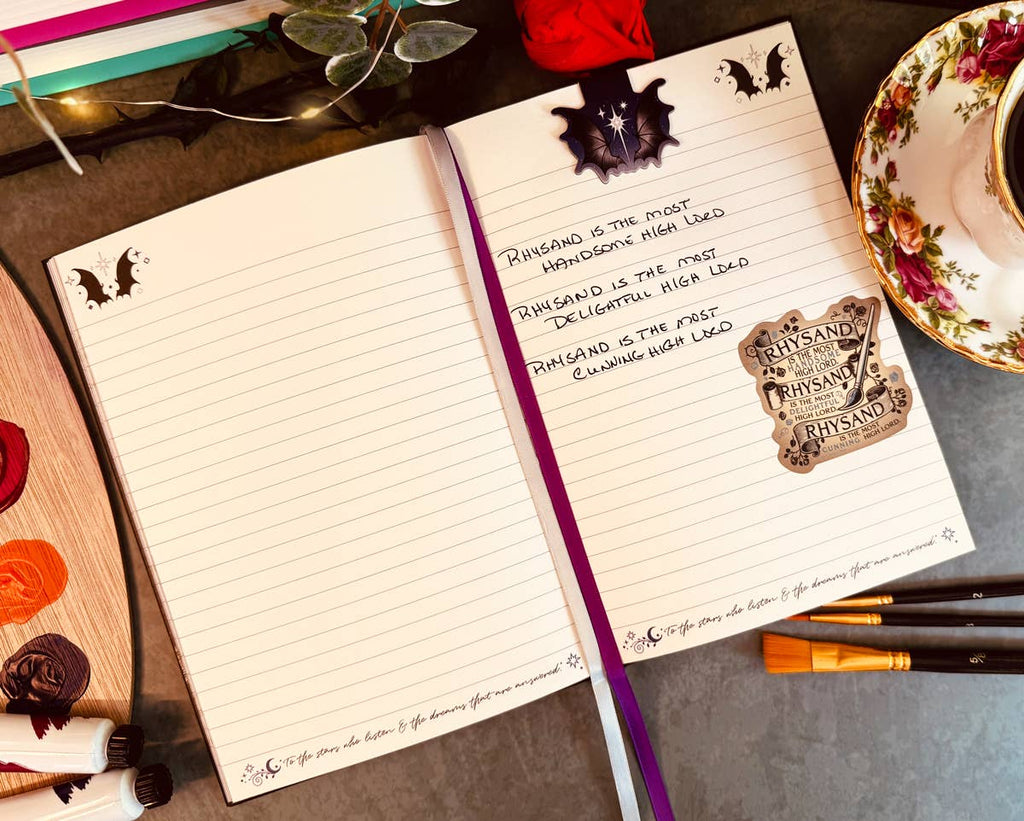 RHYSAND IS THE MOST
HANDSOME HIGH LORD
RHYSAND IS THE MOST
DELIGHTFUL HIGH LORD
RHYSAND IS THE MOST
CUNNING HIGH LORD
RHYSAND
IS THE MOST
HANDSOME
HIGH LORD.
RHYSAND
IS THE MOST
DELIGHTFUL
HIGH LORD.
RHYSAND
IS THE MOST
CUNNING HIGH LORD.
"To the stars who listen & the dreams that are answered."
"To the stars who listen & the dreams that are answered."
2
3
5/8